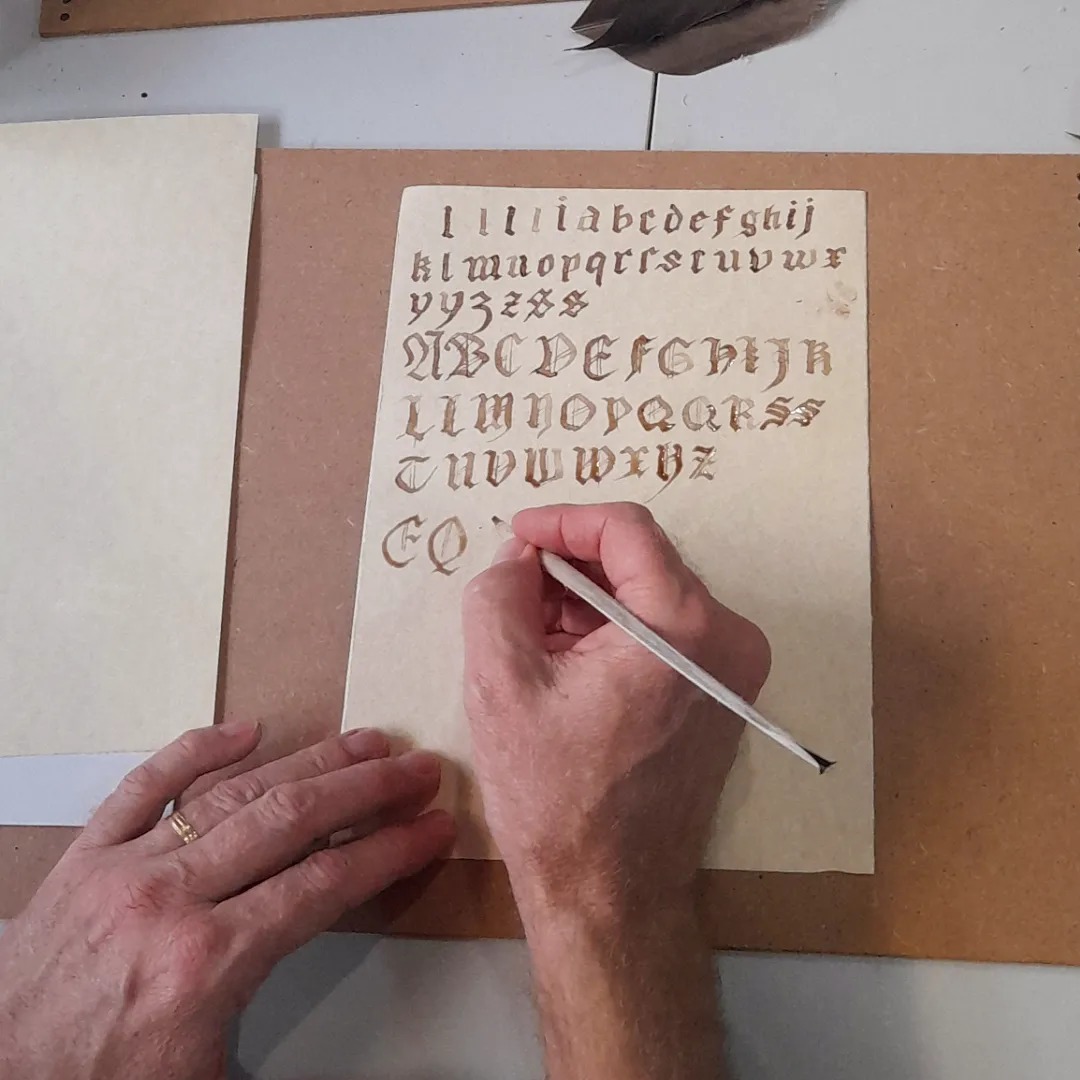 l l l l i a b c d e f g h i j
k l m n o p q r r s s t u v w x
y y z z s s
A B C D E F G H I J K
L L M N O P Q Q R S S
T U V W W X Y Z
E Q